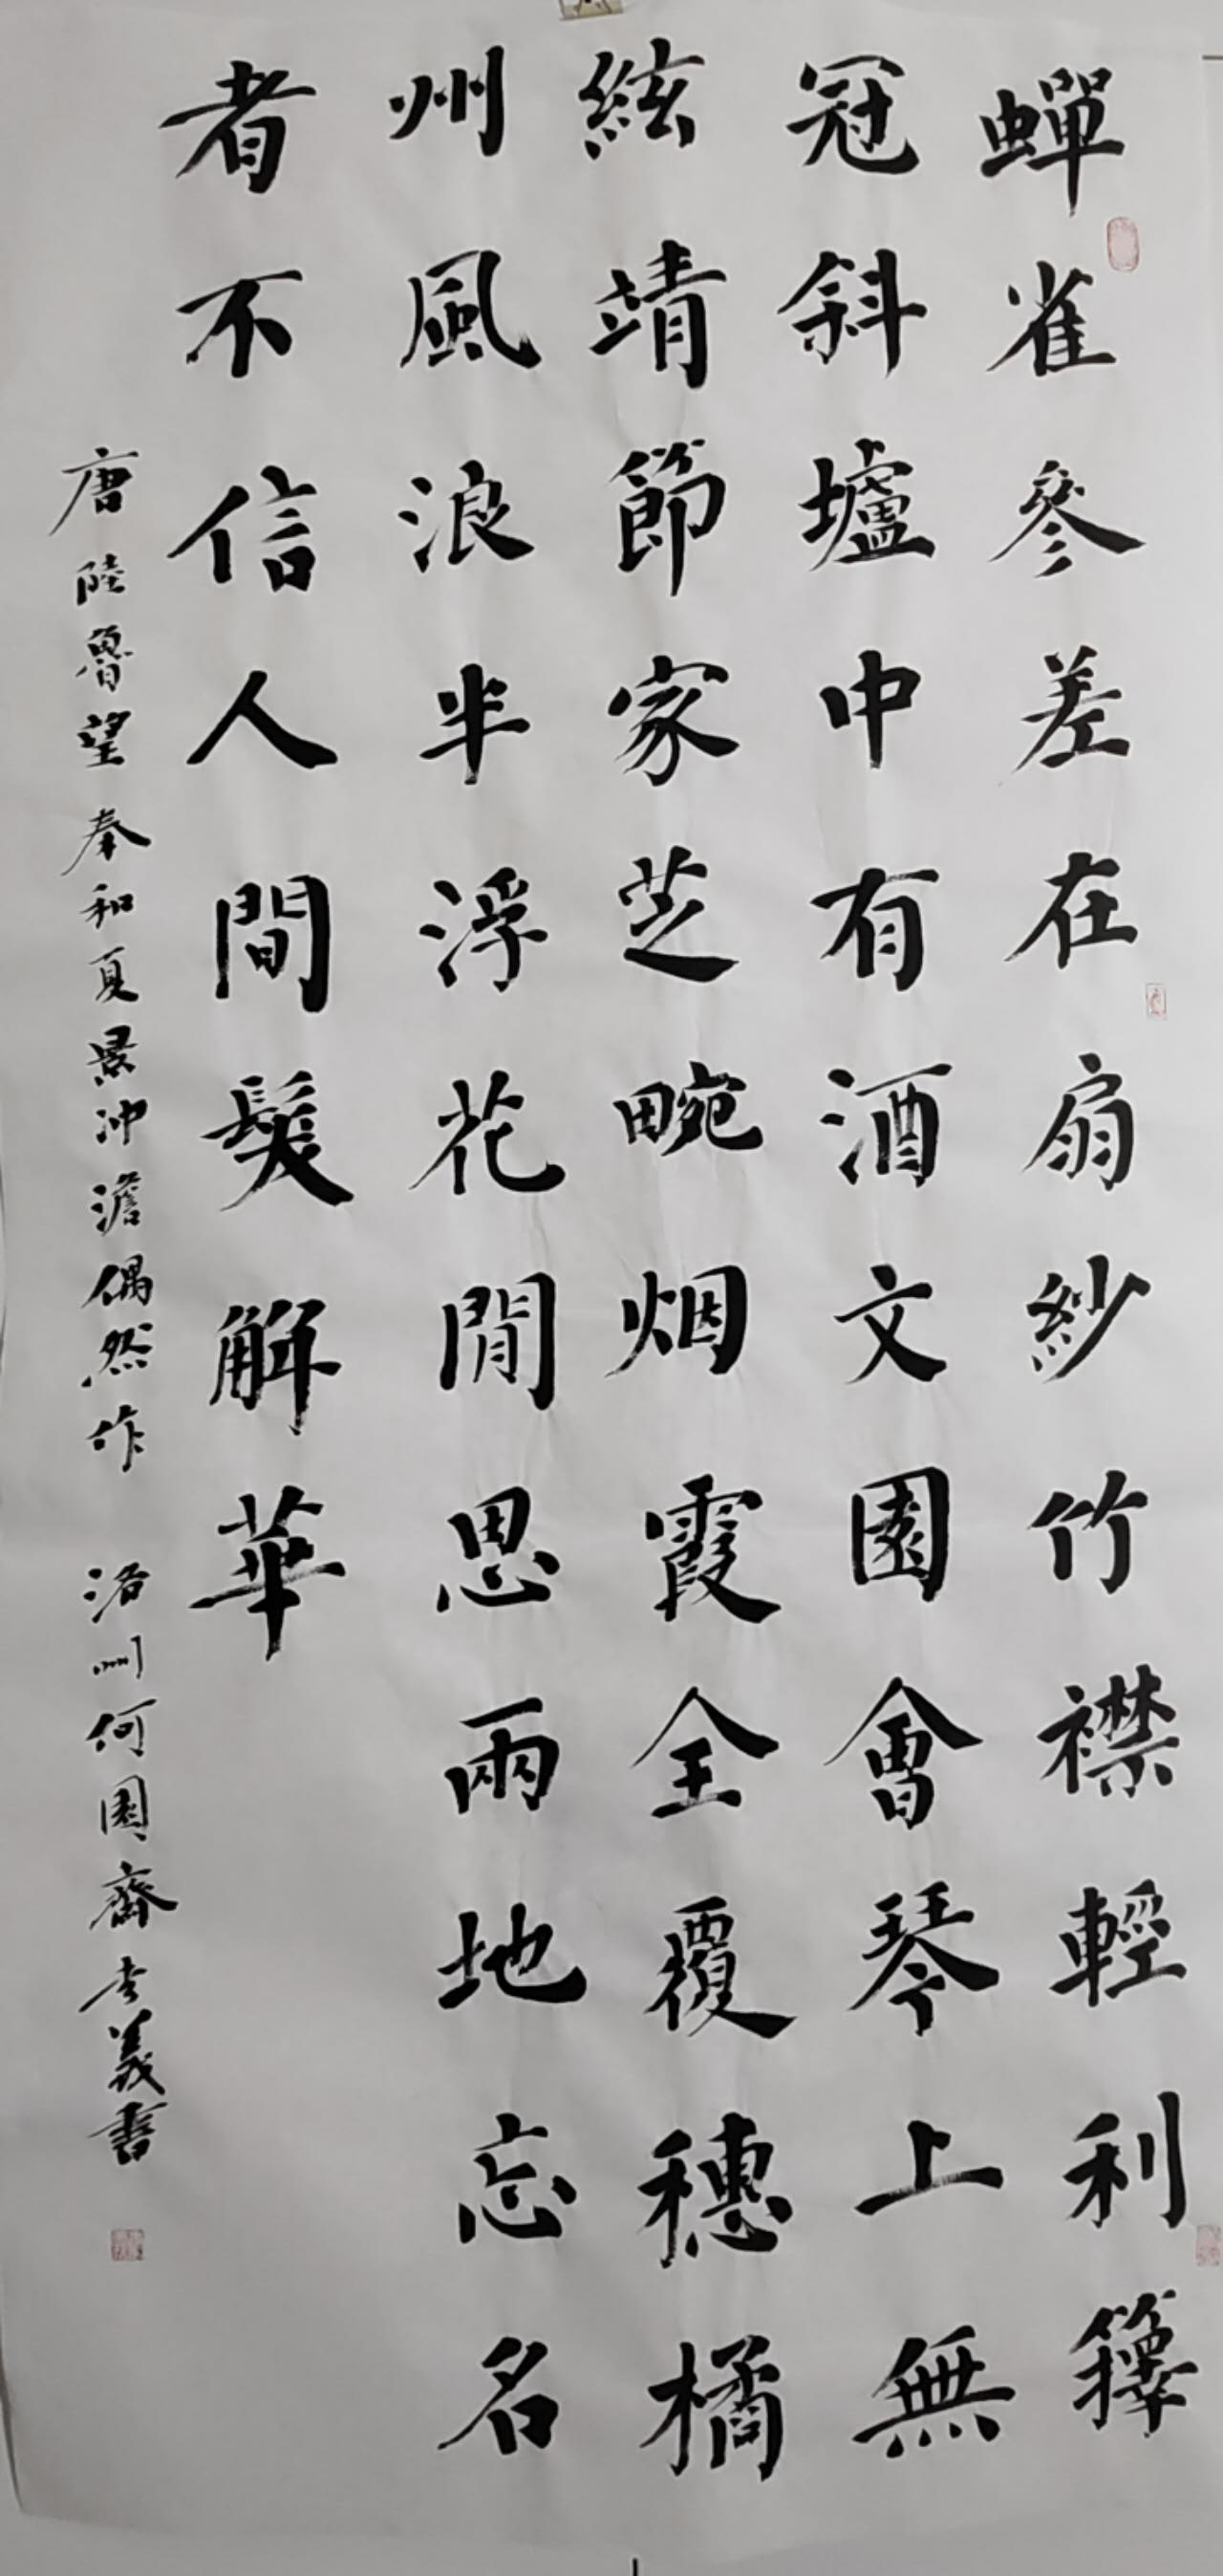 蟬雀參差在扇紗竹襟輕利籜
冠斜壚中有酒文園會琴上無
絃靖節家芝畹烟霞全覆穗橘
州風浪半浮花閒思兩地忘名
者不信人間髮解華
唐陸魯望奉和夏景冲澹偶然作 州何園齋義書